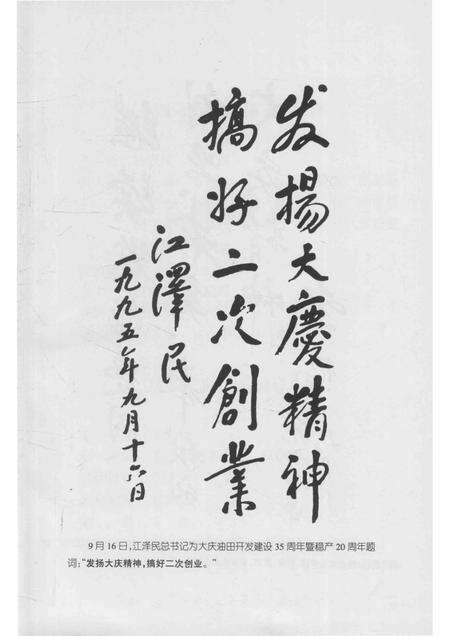 发揚大慶精神
搞好二次創業
江澤民
一九九五年九月十六日
9月16日,江泽民总书记为大庆油田开发建设35周年暨稳产20周年题
词:“发扬大庆精神,搞好二次创业。”